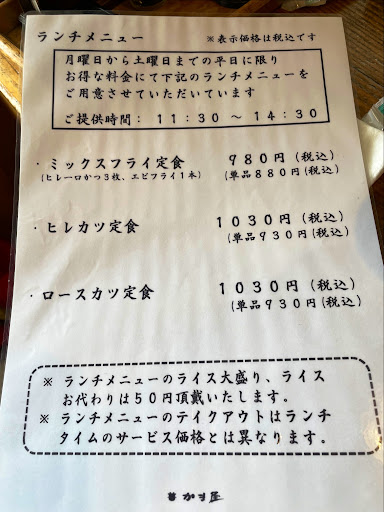 ランチメニュー ※表示価格は税込です
月曜日から土曜日までの平日に限り
お得な料金にて下記のランチメニューを
ご用意させていただいています
ご提供時間： 11：30 ～ 14：30
・ミックスフライ定食 980円（税込）
（ヒレ一口かつ3枚、エビフライ1本） （単品880円（税込）
・ヒレカツ定食 1030円（税込）
（単品930円（税込）
・ロースカツ定食 1030円（税込）
（単品930円（税込）
※ ランチメニューのライス大盛り、ライス
お代わりは50円頂戴いたします。
※ ランチメニューのテイクアウトはランチ
タイムのサービス価格とは異なります。